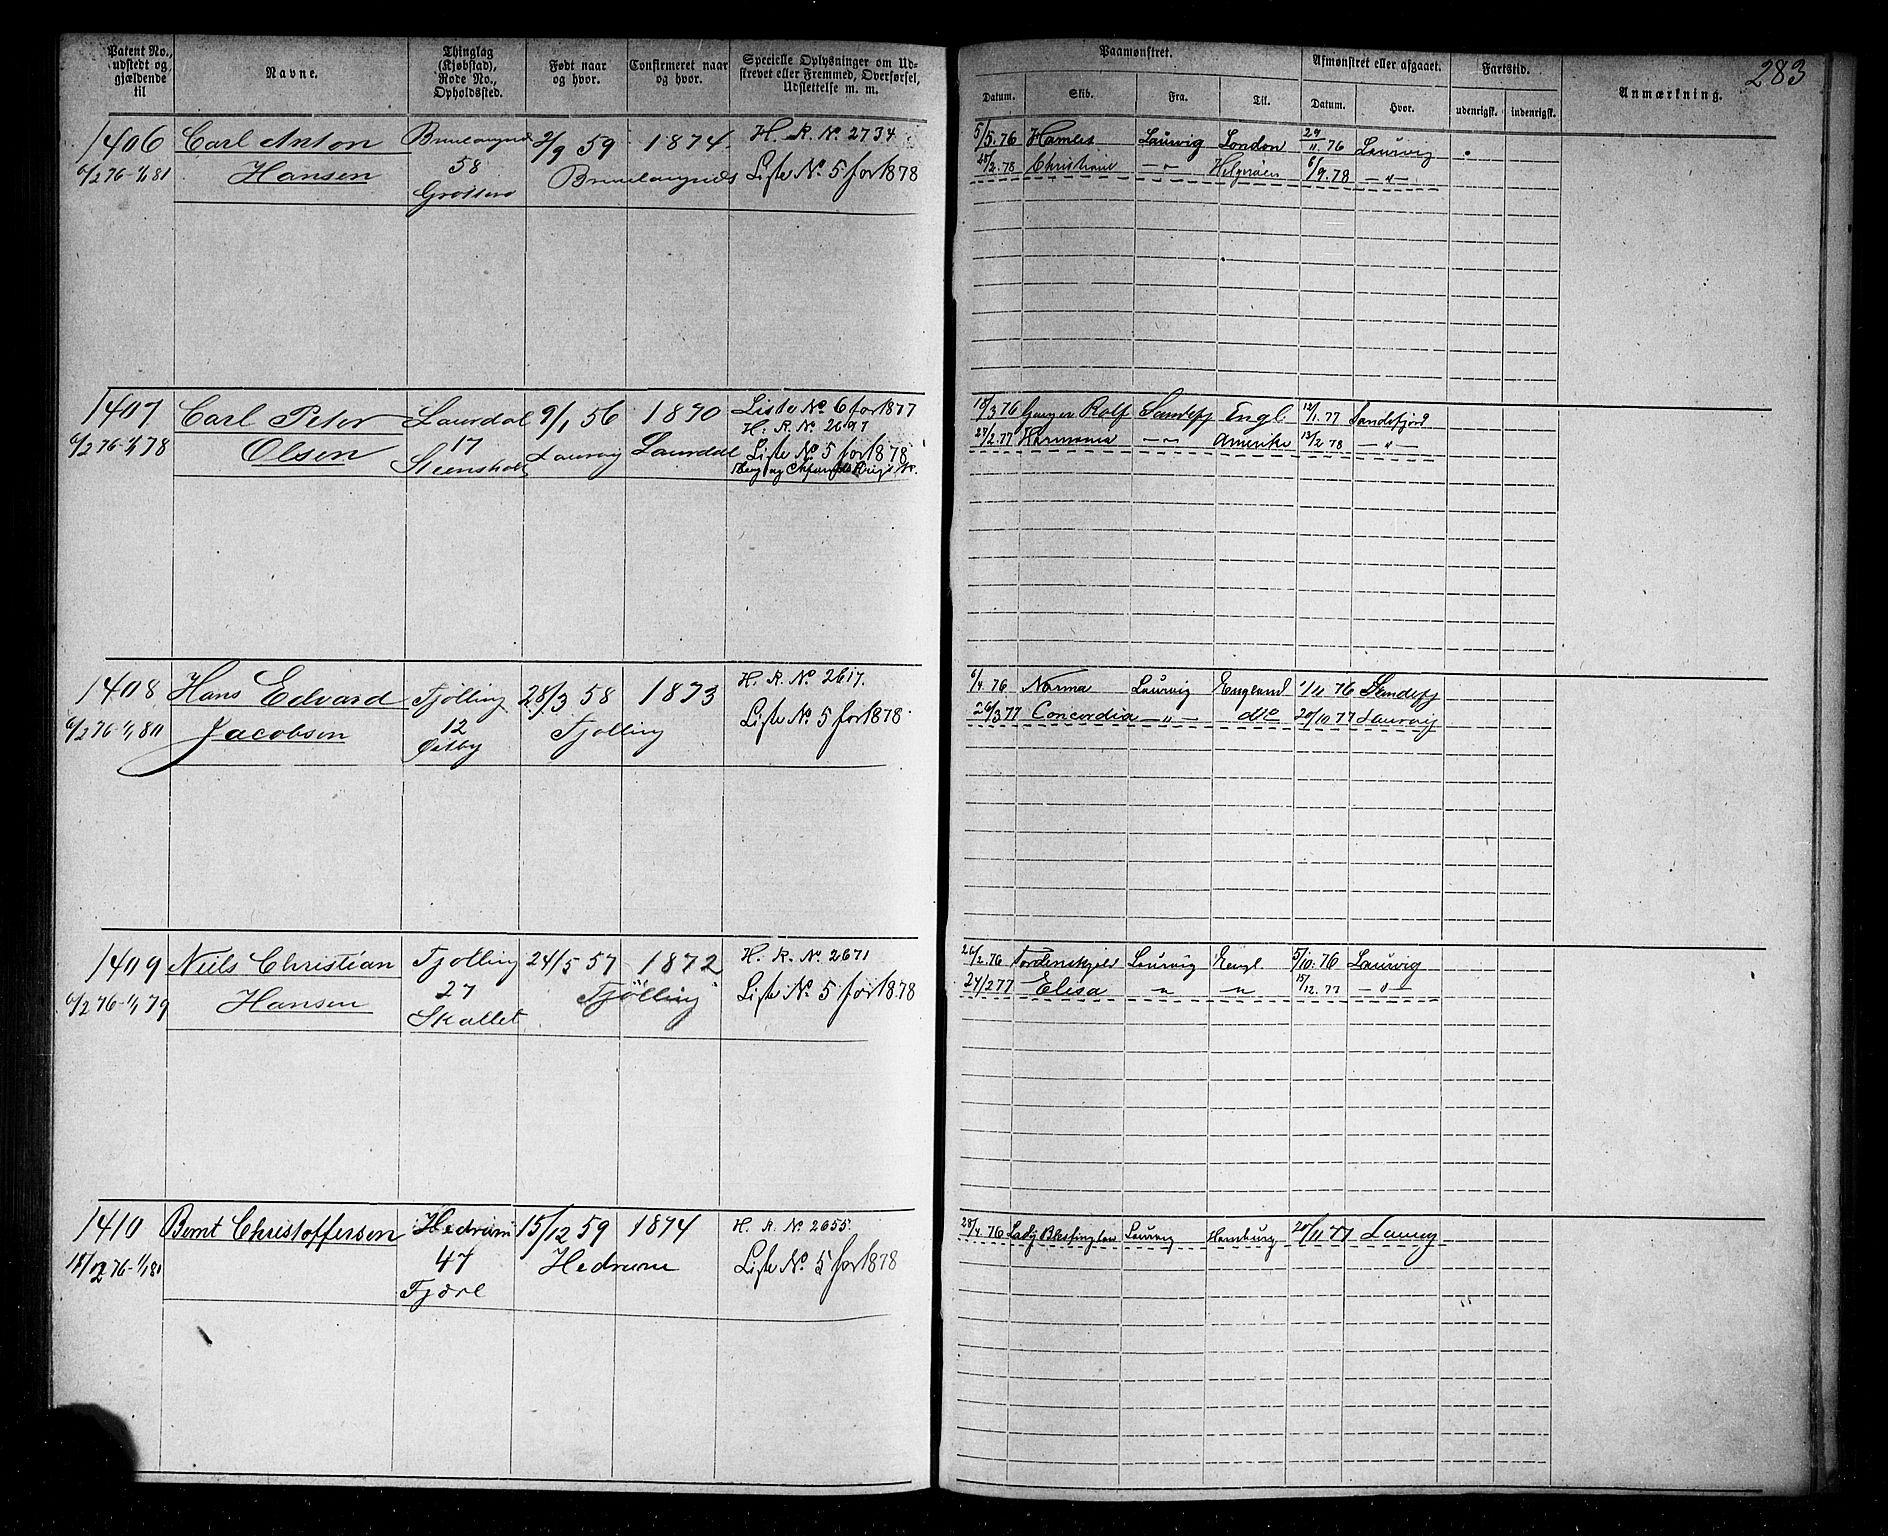 283
Patent No., udstedt og gjældende til
Navne.
Thinglag (Kjøbstad), Rode No., Opholdssted.
Født naar og hvor.
Confirmeret naar og hvor.
Specielle Oplysninger om Udstrevet eller Fremmed, Overførsel, Udslettelse m. m.
Paamønstret.
Datum.
Skib.
Fra.
Til.
Afmønstret eller afgaaet.
Datum.
Hvor.
Fartstid.
udenrigsk.
indenrigsk.
Anmærkning.
1406 Carl Anton 2/9 59 1874. H. R. No 2734
6/2 76 - 1/1 81 Hansen 58 Brunlaugnæs Liste No. 5 for 1878
5/5.76 Hamlet Laurvig London 29/11.76 Laurvig
/2.78 Christiane -"- Helgeroen 6/9.78 -"-
1407 Carl Peter Laurdal 9/1 56 1870 Liste No 6 for 1877
H. R. No 2697
6/2 76 - 1/1 78 Olsen 17 Laurvig Laurdal Liste No 5 for 1878
Steensholt
18/3 76 Ganger Rolf Sandefj Engl. 12/1.77 Sandefjord
/2.77 Harmonia -"- Amerika 13/2.78 -"-
1408 Hans Edvard Tjølling 28/3 58 1873 H. R. No 2617.
6/2 76 - 1/1 80 Jacobsen 12 Tjølling Liste No. 5 for 1878
Østby
6/4.76 Norma Laurvig England 1/11 76 Sandefj
26/3 77 Concordia -"- do 20/10.77 Laurvig
1409 Niels Christian Tjølling 24/5 57 1872 H. R. No. 2671
6/2 76 - 1/1 79 Hansen 27 Tjølling Liste No. 5 for 1878
Skallet
26/2.76 Tordenskjold Laurvig Engl. 5/10.76 Laurvig
24/2 77 Elisa " " 15/12.77 -"-
1410 Bernt Christoffersen Hedrum 15/12 59 1874 H. R. No 2655
18/2 76 - 1/1 80 47 Hedrum Liste No. 5 for 1878
Tjøre
28/4.76 Lady Laurvig Hamburg 20/11.77 Laurvig